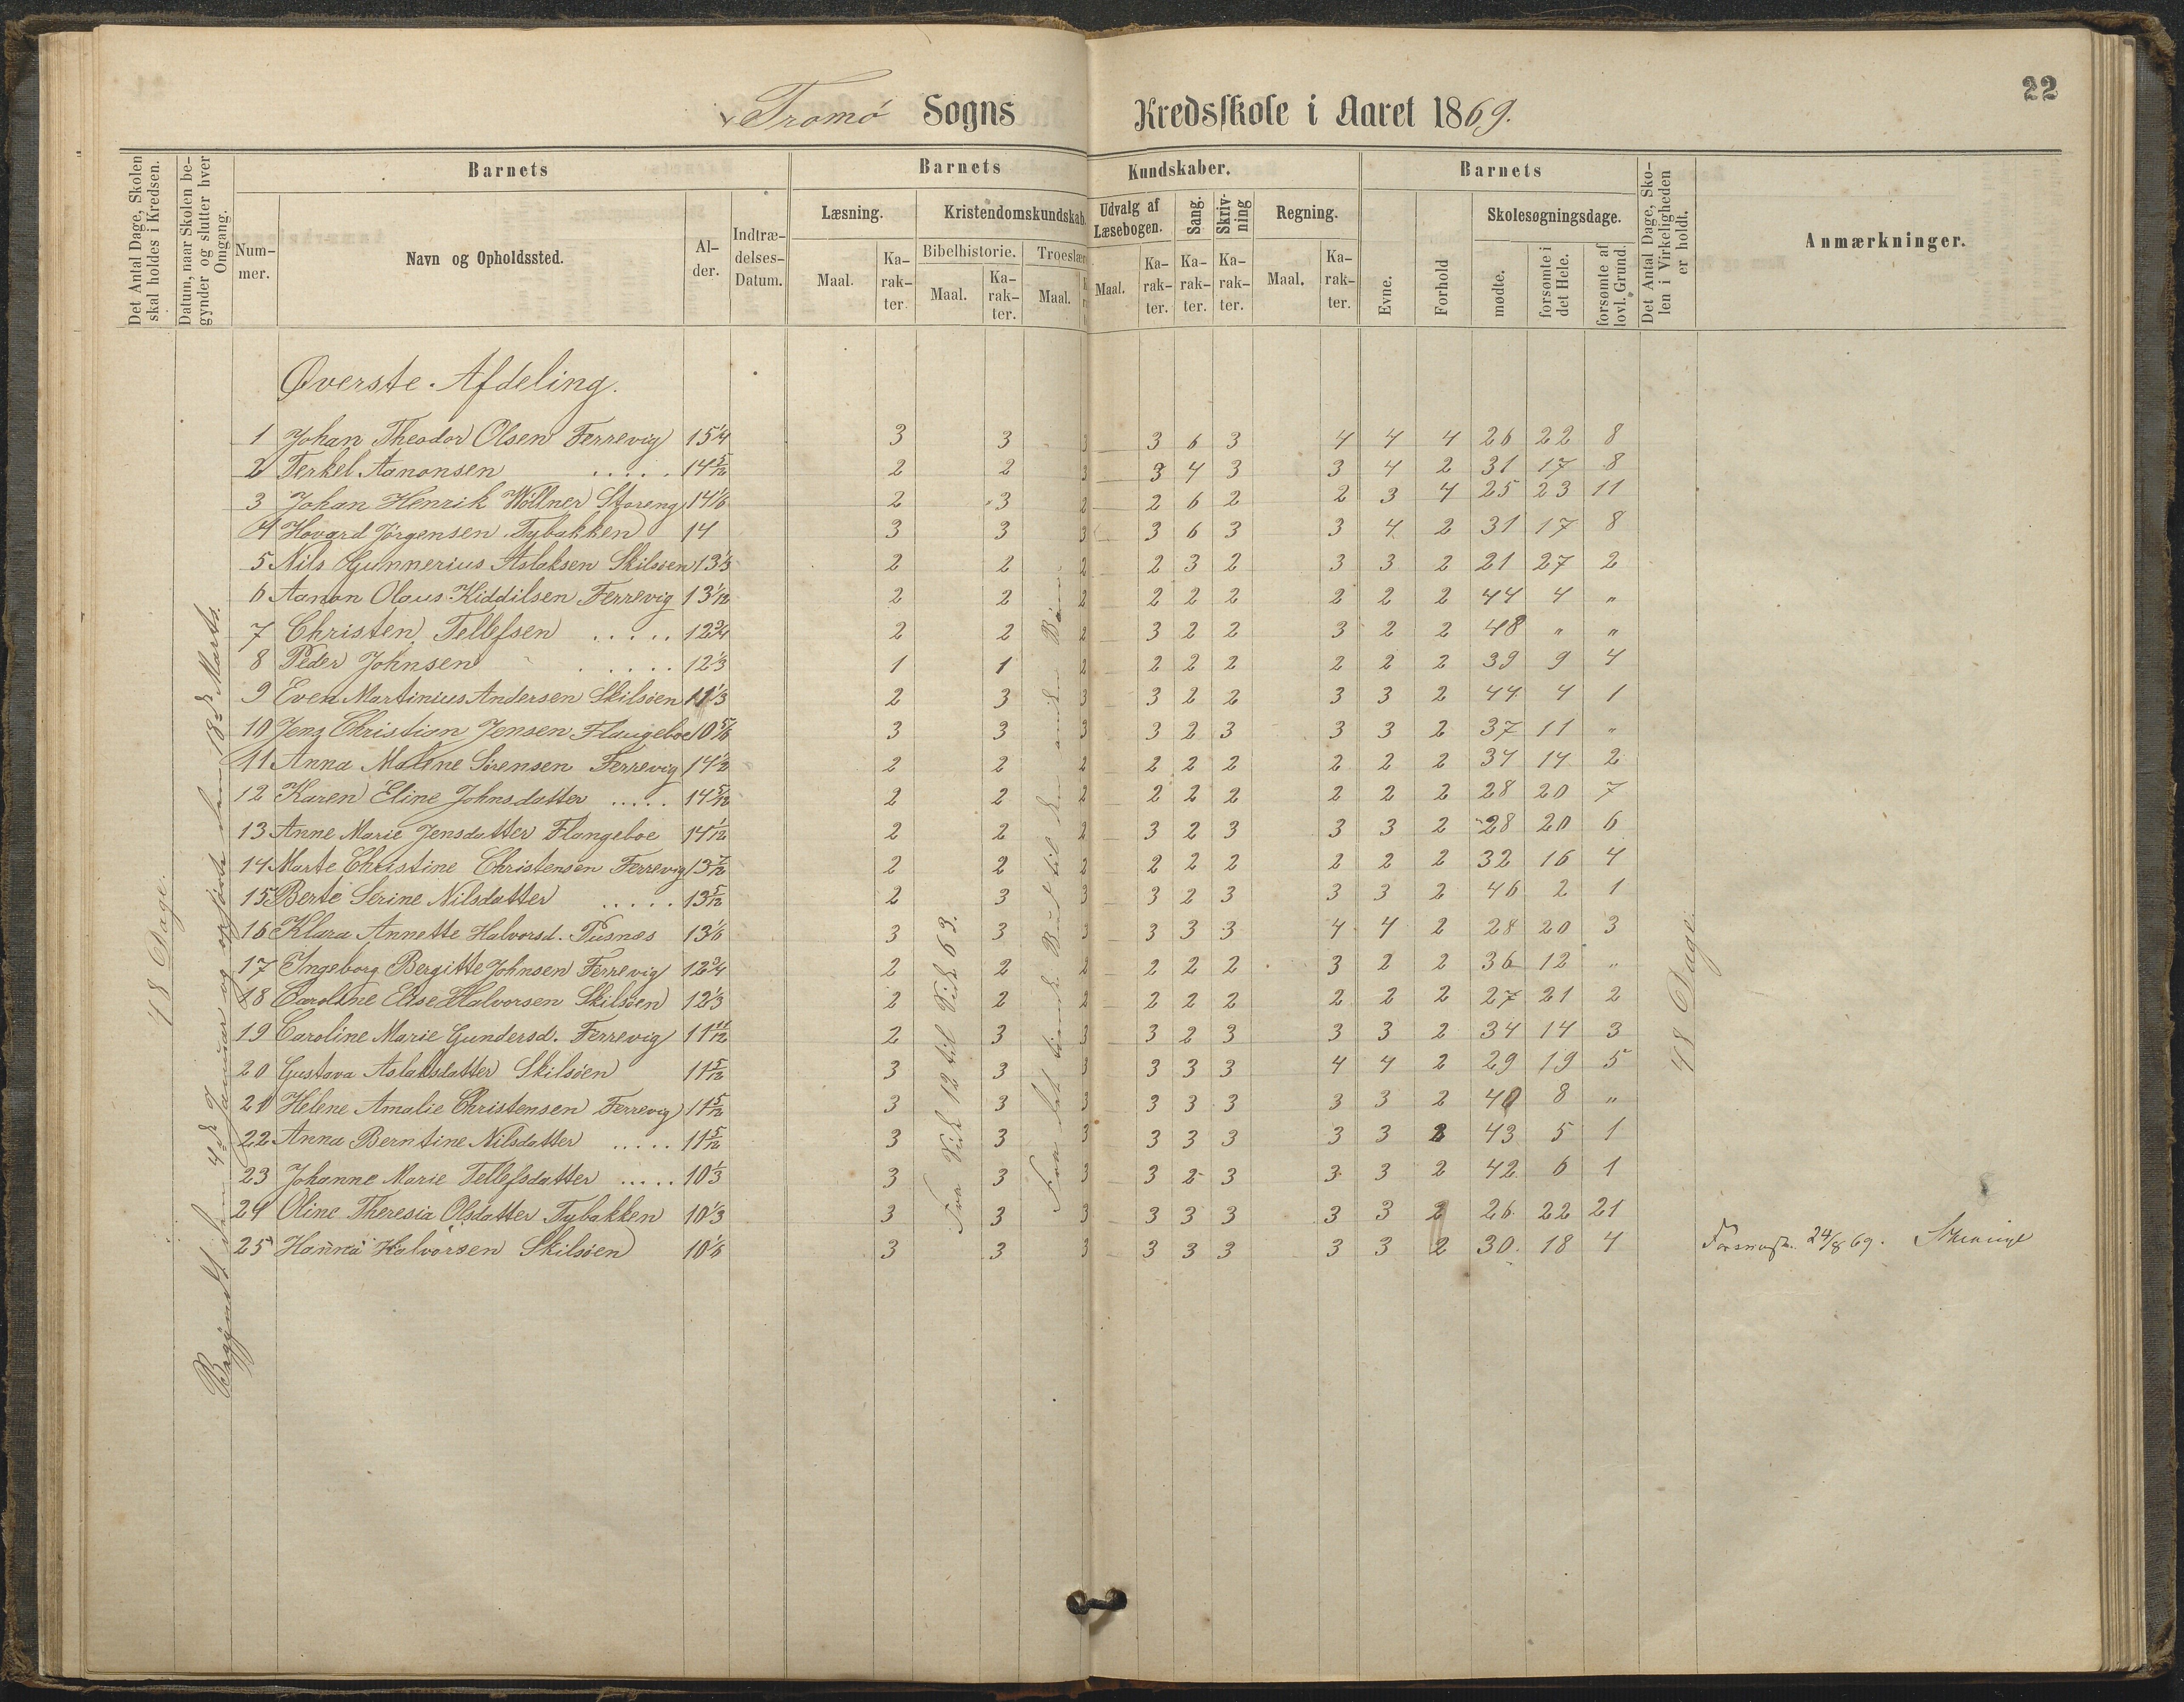 22
Tromø Sogns Kredsskole i Aaret 1869.
Det Antal Dage, Skolen skal holdes i Kredsen.
Datum, naar Skolen begynder og slutter hver Omgang.
Barnets
Barnets Kundskaber.
Barnets
Det Antal Dage, Skolen i Virkeligheden er holdt.
Anmærkninger.
Nummer.
Navn og Opholdssted.
Alder.
Indtrædelses-Datum.
Læsning.
Kristendomskundskab.
Udvalg af Læsebogen.
Sang.
Skrivning
Regning.
Evne.
Forhold
Skolesøgningsdage.
Bibelhistorie.
Troeslær
Maal. Karakter. Maal. Karakter. Maal. Maal. Karakter. Karakter. Karakter. Maal. Karakter.
mødte.
forsømte i det Hele.
forsømte af lovl. Grund.
Øverste Afdeling.
1 Johan Theodor Olsen Færrevig 15 1/4 3 3 3 3 6 3 4 4 4 26 22 8
2 Terkel Aanonsen ..... 14 5/12 2 2 3 3 4 3 3 4 2 31 17 8
3 Johan Henrik Wöllner Storeng 14 1/6 2 3 2 2 6 2 2 3 4 25 23 11
4 Hovard Jörgensen Tybakken 14 3 3 3 3 6 3 3 4 2 31 17 8
5 Nils Gunnerius Aslaksen Skilsøen 13 1/3 2 2 2 2 3 2 3 3 2 21 27 2
6 Aanon Olaus Kiddilsen Færrevig 13 1/12 2 2 2 2 2 2 2 2 2 44 4 "
7 Christen Tellefsen ..... 12 3/4 2 2 2 3 2 2 3 2 2 48 " "
8 Peder Johnsen ..... 12 1/3 1 1 2 2 2 2 2 2 2 39 9 4
9 Even Martinius Andersen Skilsöen 11 1/3 2 3 3 3 2 2 3 3 2 44 4 1
10 Jens Christian Jensen Flangeboe 10 5/6 3 3 3 3 2 3 3 3 2 37 11 "
11 Anna Maline Sörensen Færrevig 14 1/2 2 2 2 2 2 2 2 2 2 34 14 2
12 Karen Eline Johnsdatter ..... 14 5/12 2 2 2 2 2 2 2 2 2 28 20 7
13 Anne Marie Jensdatter Flangeboe 14 1/12 2 2 2 3 2 3 3 3 2 28 20 6
14 Marte Christine Christensen Færrevig 13 7/12 2 2 2 2 2 2 2 2 2 32 16 4
15 Berte Serine Nilsdatter ..... 13 5/12 2 3 3 3 2 3 3 3 2 46 2 1
16 Klara Annette Halvorsd. Pusnæs 13 1/6 3 3 3 3 3 3 4 4 2 28 20 3
17 Ingeborg Bergitte Johnsen Færrevig 12 3/4 2 2 2 2 2 2 3 2 2 36 12 "
18 Caroline Elise Halvorsen Skilsöen 12 1/3 2 2 2 2 2 2 2 2 2 27 21 2
19 Caroline Marie Gundersd. Færrevig 11 11/12 2 3 3 3 2 3 3 3 2 34 14 3
20 Gustava Aslaksdatter Skilsöen 11 5/12 3 3 3 3 3 3 4 4 2 29 19 5
21 Helene Amalie Christensen Færrevig 11 5/12 3 3 3 3 3 3 3 3 2 40 8 "
22 Anna Berntine Nilsdatter ..... 11 5/12 3 3 3 3 3 3 3 3 2 43 5 1
23 Johanne Marie Tellefsdatter ..... 10 1/3 3 3 3 3 2 3 3 3 2 42 6 1
24 Oline Theresia Olsdatter Tybakken 10 1/3 3 3 3 3 3 3 3 3 2 26 22 21
25 Hanna Halvorsen Skilsöen 10 1/6 3 3 3 3 3 3 3 3 2 30 18 4
24/8 69.
48 Dage.
Begyndt den 4de Januar og den 18de Marts.
Fra Side 12 til Side 63.
Fra det Bud til den anden Bön
48 Dage.